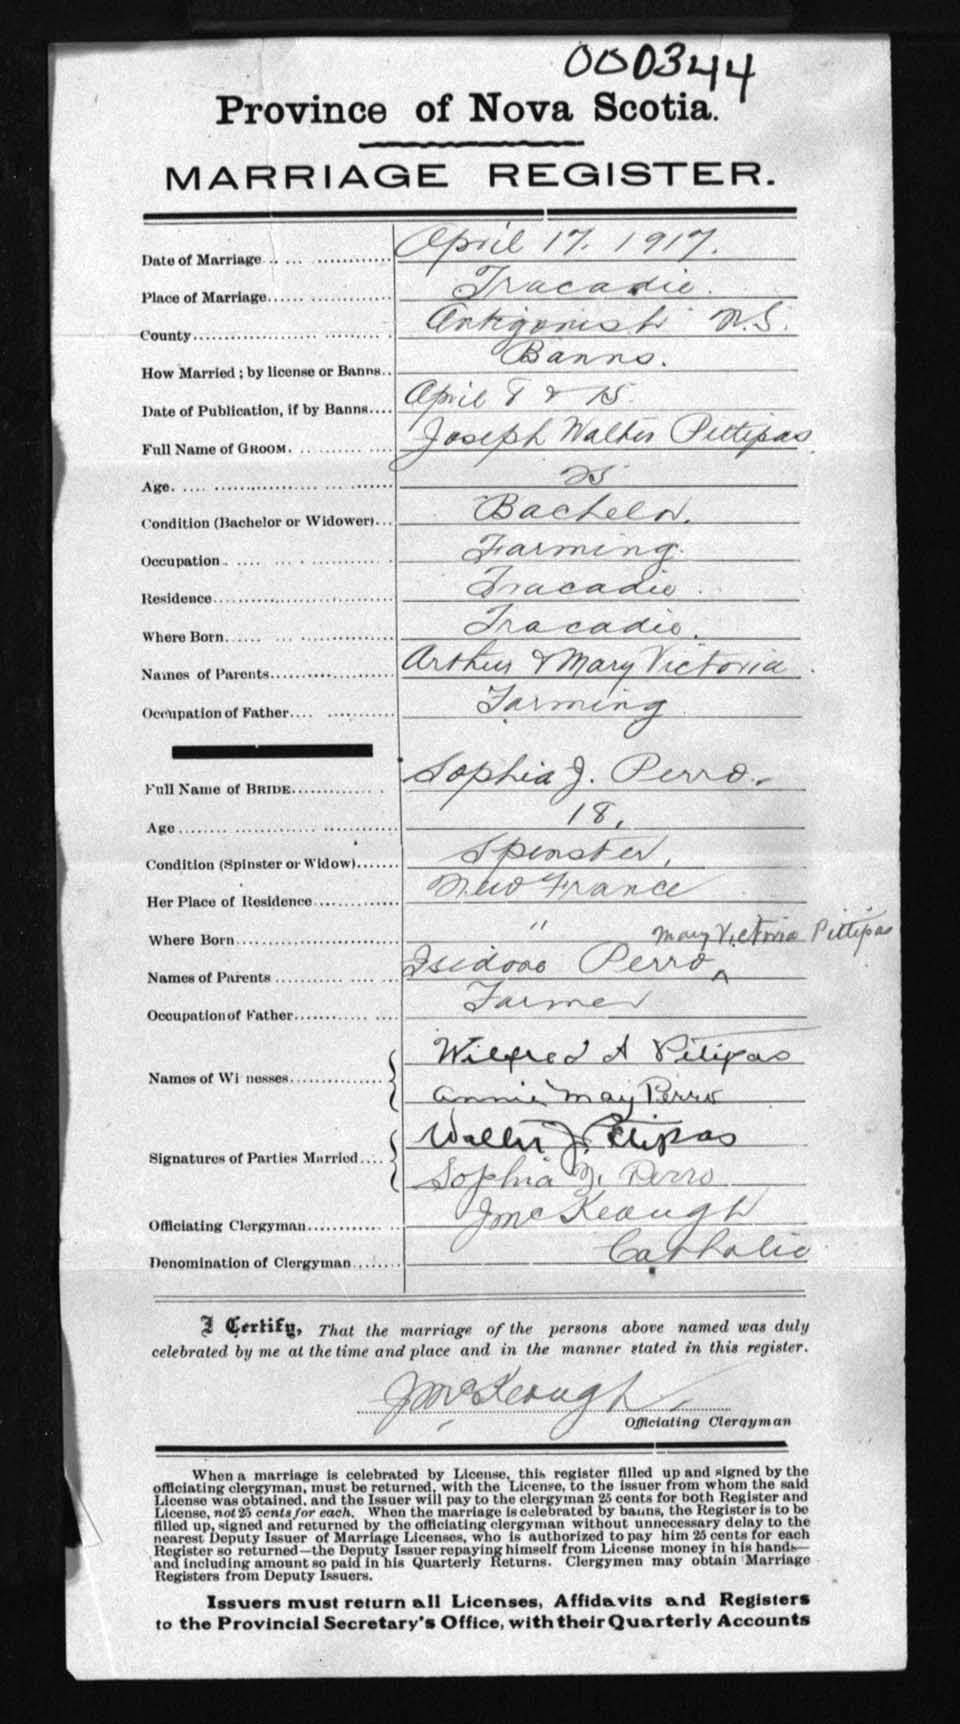 000344
Province of Nova Scotia.
MARRIAGE REGISTER.
Date of Marriage April 17. 1917.
Place of Marriage Tracadie.
County Antigonish N.S.
How Married; by license or Banns Banns.
Date of Publication, if by Banns April 8 & 15.
Full Name of GROOM. Joseph Walter Pettipas
Age. 25
Condition (Bachelor or Widower) Bachelor.
Occupation Farming.
Residence Tracadie.
Where Born Tracadie.
Names of Parents Arthur & Mary Victoria.
Occupation of Father Farming
Full Name of BRIDE Sophia J. Perro.
Age 18,
Condition (Spinster or Widow) Spinster,
Her Place of Residence New France
Where Born "
Mary Victoria Pittipas
Names of Parents Isidore Perro ^
Occupation of Father Farmer
Names of Witnesses Wilfred A Petipas
Annie May Perro
Signatures of Parties Married Walter J. Petipas
Sophia J. Perro
Officiating Clergyman J McKeough
Denomination of Clergyman Catholic
I Certify, That the marriage of the persons above named was duly
celebrated by me at the time and place and in the manner stated in this register.
J McKeough
Officiating Clergyman
When a marriage is celebrated by License, this register filled up and signed by the
officiating clergyman, must be returned, with the License, to the issuer from whom the said
License was obtained, and the Issuer will pay to the clergyman 25 cents for both Register and
License, not 25 cents for each. When the marriage is celebrated by banns, the Register is to be
filled up, signed and returned by the officiating clergyman without unnecessary delay to the
nearest Deputy Issuer of Marriage Licenses, who is authorized to pay him 25 cents for each
Register so returned—the Deputy Issuer repaying himself from License money in his hands—
and including amount so paid in his Quarterly Returns. Clergymen may obtain Marriage
Registers from Deputy Issuers.
Issuers must return all Licenses, Affidavits and Registers
to the Provincial Secretary's Office, with their Quarterly Accounts